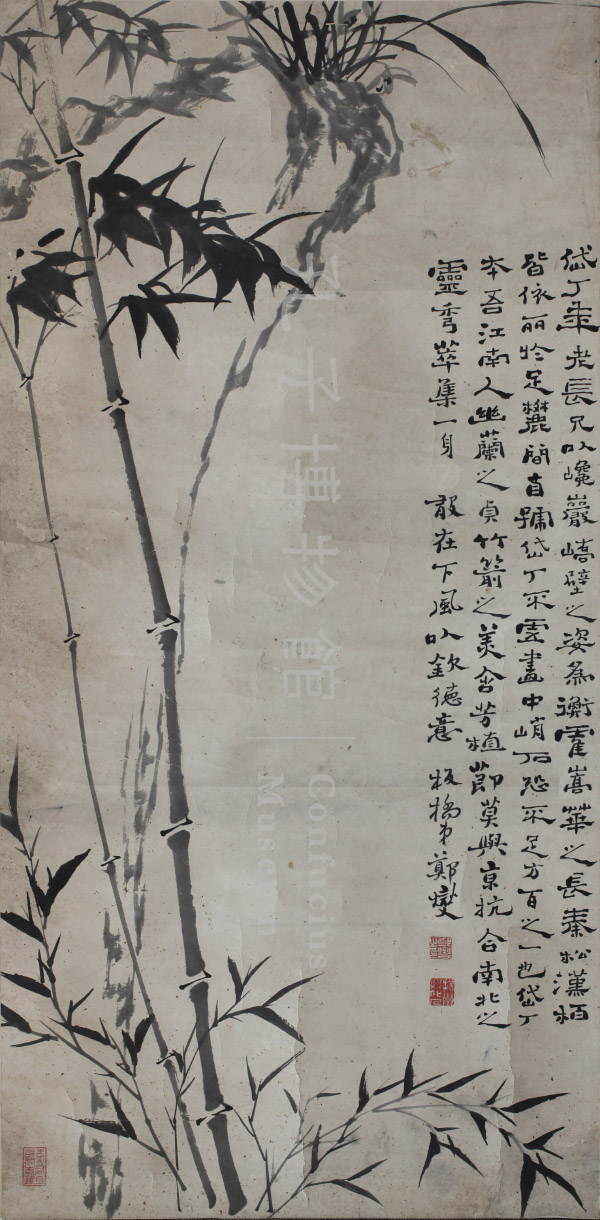 岱丁年老長兄以巉巖嶠壁之姿為衡霍嵩華之長秦松漢栢
皆依而於足麓間自號岱丁不虛畫中峭石恐不足方百之一也岱丁
本吾江南人幽蘭之貞竹箭之美含芳植節莫與京抗合南北之
靈秀萃集一身敢在下風以欽德意板橋弟鄭燮
孔子博物館
Confucius
Museum